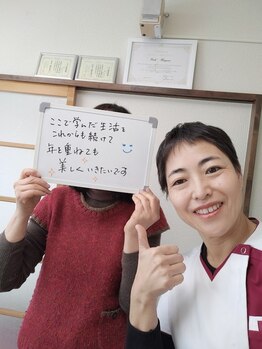 ここで学んだ生活を
これからも続けて
年を重ねても
美しくいきたいです